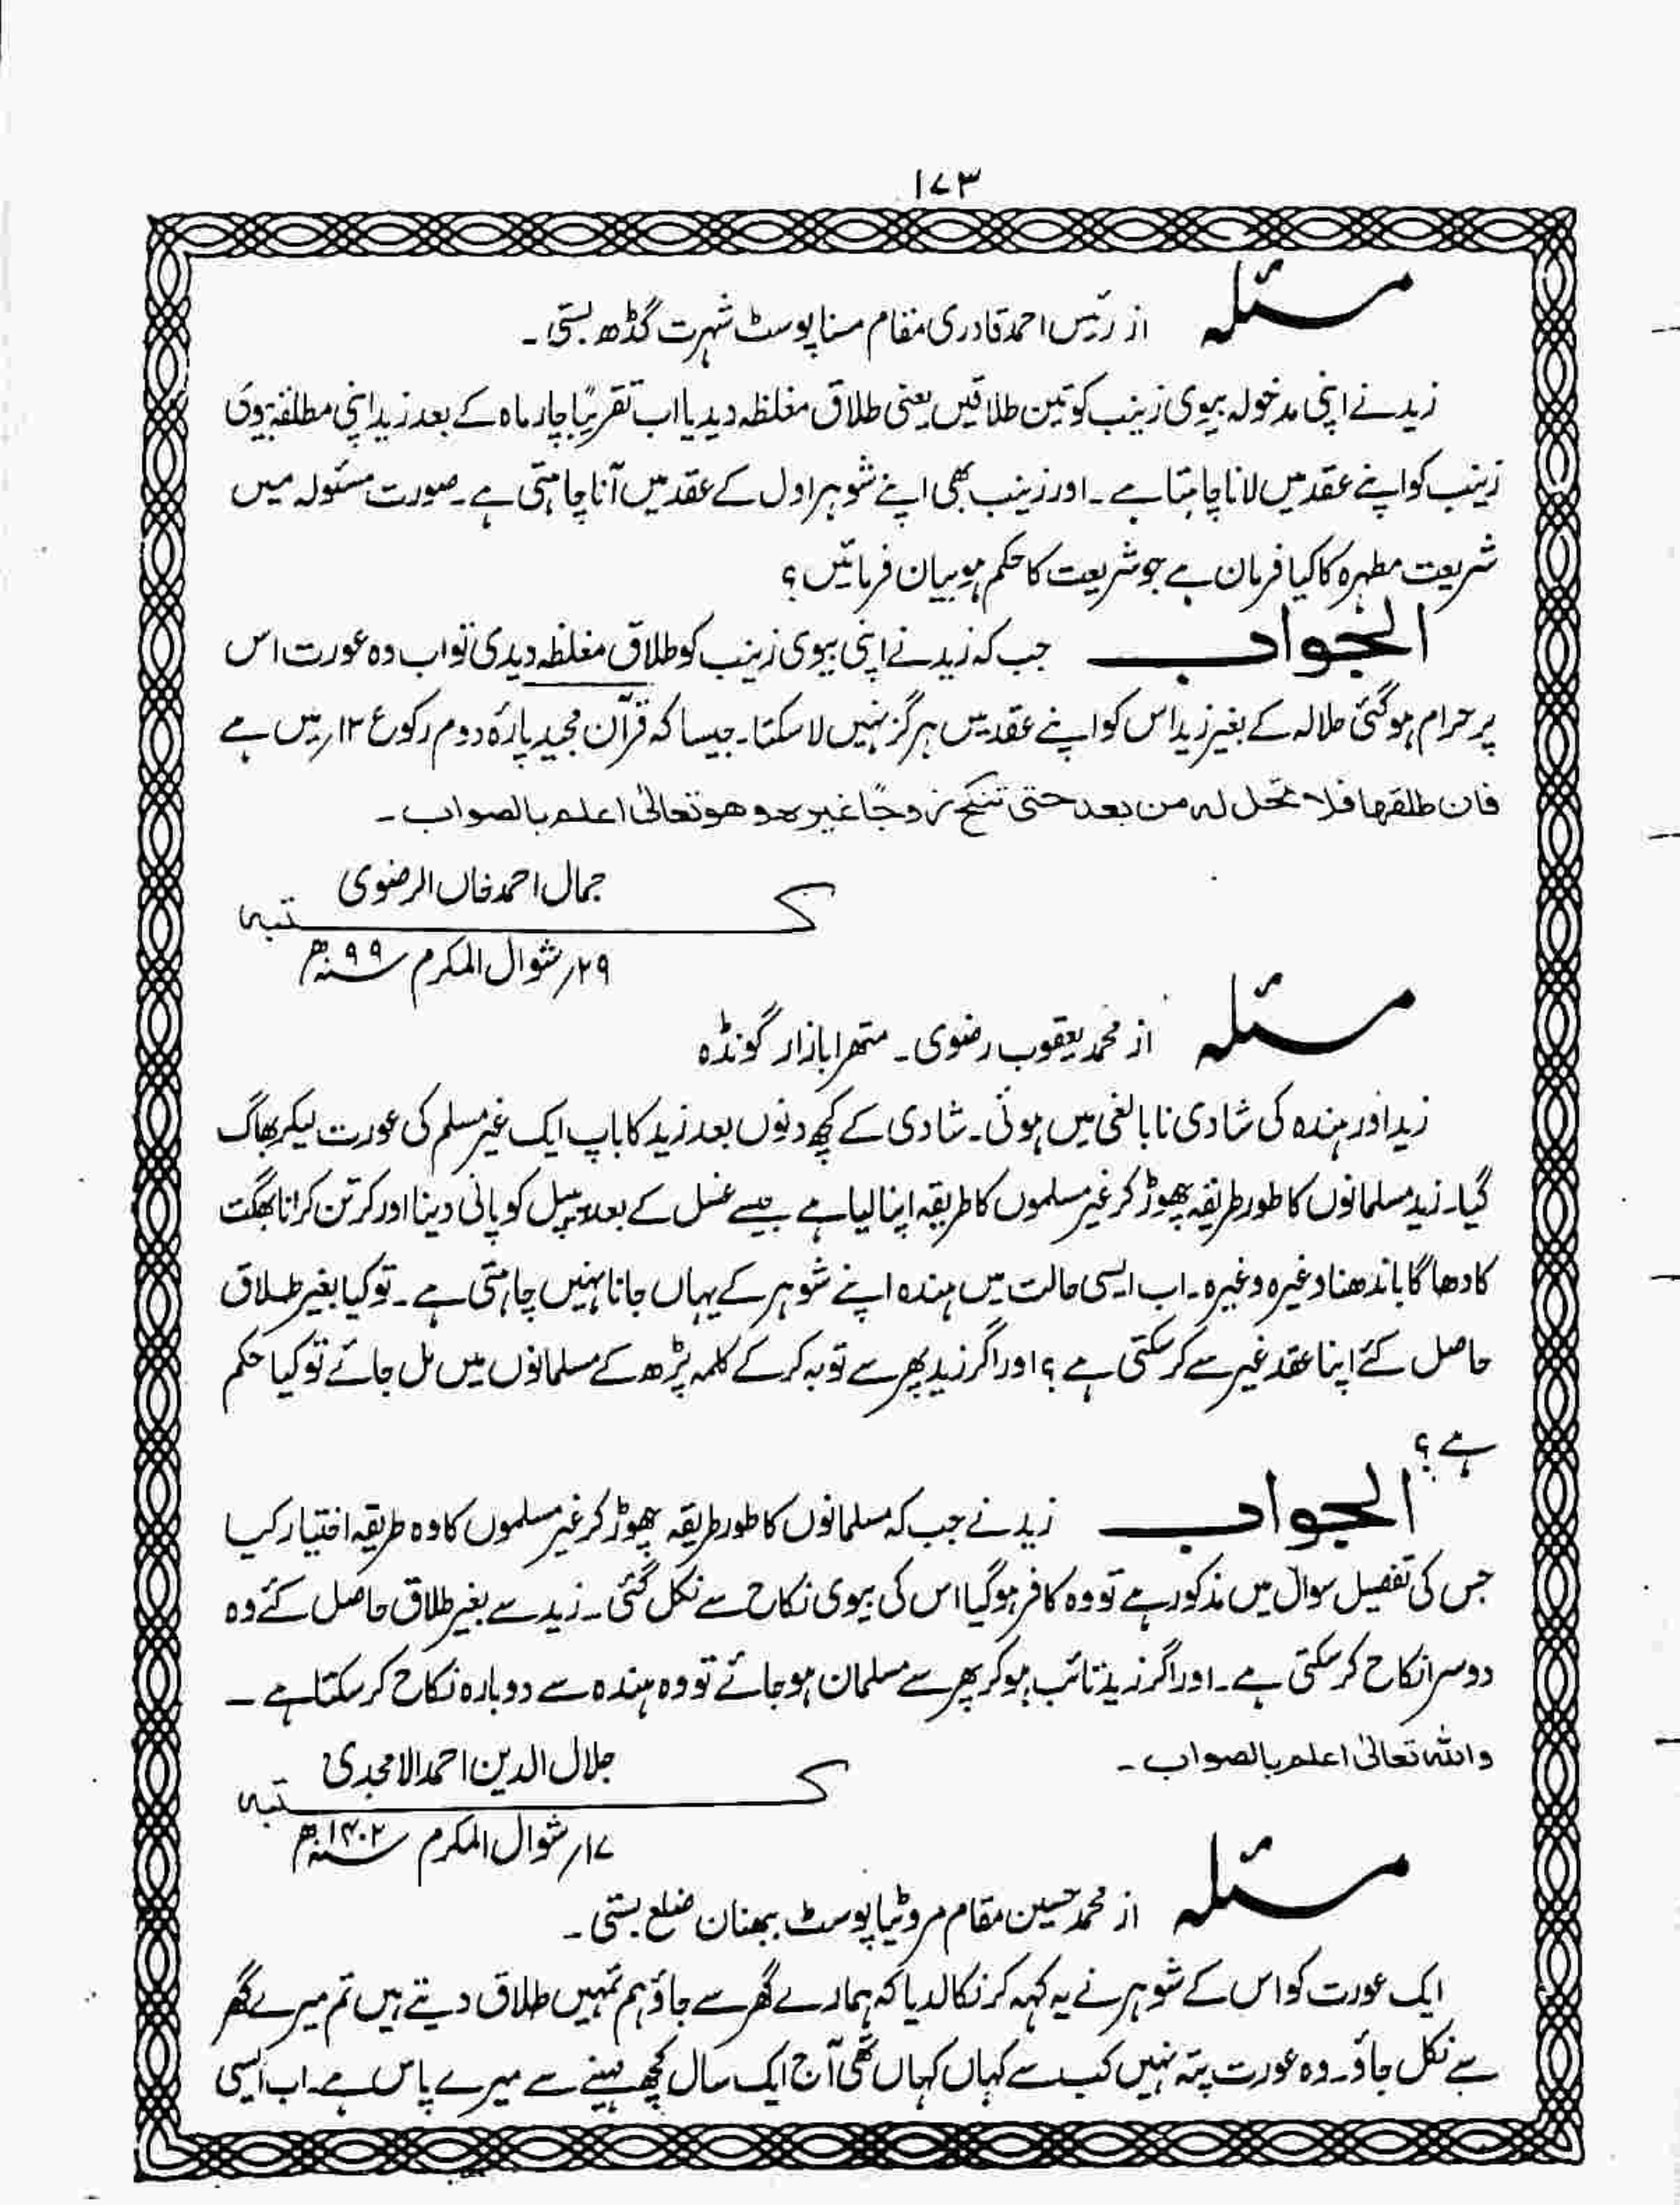 ۱۷۳
مسئلہ از رئیس احمد قادری مقام مسنا پوسٹ شہرت گڈھ بستی۔
زید نے اپنی مدخولہ بیوی زینب کو تین طلاقیں یعنی طلاق مغلظہ دیدیا اب تقریبًا چار ماہ کے بعد زید اپنی مطلقہ بیوی
زینب کو اپنے عقد میں لانا چاہتا ہے۔ اور زینب بھی اپنے شوہر اول کے عقد میں آنا چاہتی ہے۔ صورت مسئولہ میں
شریعت مطہرہ کا کیا فرمان ہے جو شریعت کا حکم ہو بیان فرمائیں؟
الجواب جب کہ زید نے اپنی بیوی زینب کو طلاق مغلظہ دیدی تو اب وہ عورت اس
پر حرام ہو گئی حلالہ کے بغیر زید اس کو اپنے عقد میں ہرگز نہیں لا سکتا۔ جیسا کہ قرآن مجید پارۂ دوم رکوع ۱۳؍ میں ہے
فان طلقہا فلا تحل لہ من بعد حتی تنکح زوجًا غیرہ وھو تعالیٰ اعلم بالصواب۔
جمال احمد خاں الرضوی
کتبہ
۲۹؍ شوال المکرم سنہ ۹۹ھ
مسئلہ از محمد یعقوب رضوی۔ متھرا بازار گونڈہ
زید اور ہندہ کی شادی نابالغی میں ہوئی۔ شادی کے کچھ دنوں بعد زید کا باپ ایک غیر مسلم کی عورت لیکر بھاگ
گیا۔ زید مسلمانوں کا طور طریقہ چھوڑ کر غیر مسلموں کا طریقہ اپنا لیا ہے جیسے غسل کے بعد پیپل کو پانی دینا اور کرتن کرانا بھگت
کا دھاگا باندھنا وغیرہ وغیرہ۔ اب ایسی حالت میں ہندہ اپنے شوہر کے یہاں جانا نہیں چاہتی ہے۔ تو کیا بغیر طلاق
حاصل کئے اپنا عقد غیر سے کر سکتی ہے؟ اور اگر زید پھر سے توبہ کر کے کلمہ پڑھ کے مسلمانوں میں مل جائے تو کیا حکم
ہے؟
الجواب زید نے جب کہ مسلمانوں کا طور طریقہ چھوڑ کر غیر مسلموں کا وہ طریقہ اختیار کیا
جس کی تفصیل سوال میں مذکور ہے تو وہ کافر ہو گیا اس کی بیوی نکاح سے نکل گئی۔ زید سے بغیر طلاق حاصل کئے وہ
دوسرا نکاح کر سکتی ہے۔ اور اگر زید تائب ہو کر پھر سے مسلمان ہو جائے تو وہ ہندہ سے دوبارہ نکاح کر سکتا ہے۔
واللہ تعالیٰ اعلم بالصواب۔
جلال الدین احمد الامجدی
کتبہ
۱۷؍ شوال المکرم سنہ ۱۴۰۲ھ
مسئلہ از محمد حسین مقام مروٹیا پوسٹ ببھنان ضلع بستی۔
ایک عورت کو اس کے شوہر نے یہ کہہ کر نکالدیا کہ ہمارے گھر سے جاؤ ہم تمہیں طلاق دیتے ہیں تم میرے گھر
سے نکل جاؤ۔ وہ عورت پتہ نہیں کب سے کہاں کہاں تھی آج ایک سال کچھ مہینے سے میرے پاس ہے۔ اب ایسی